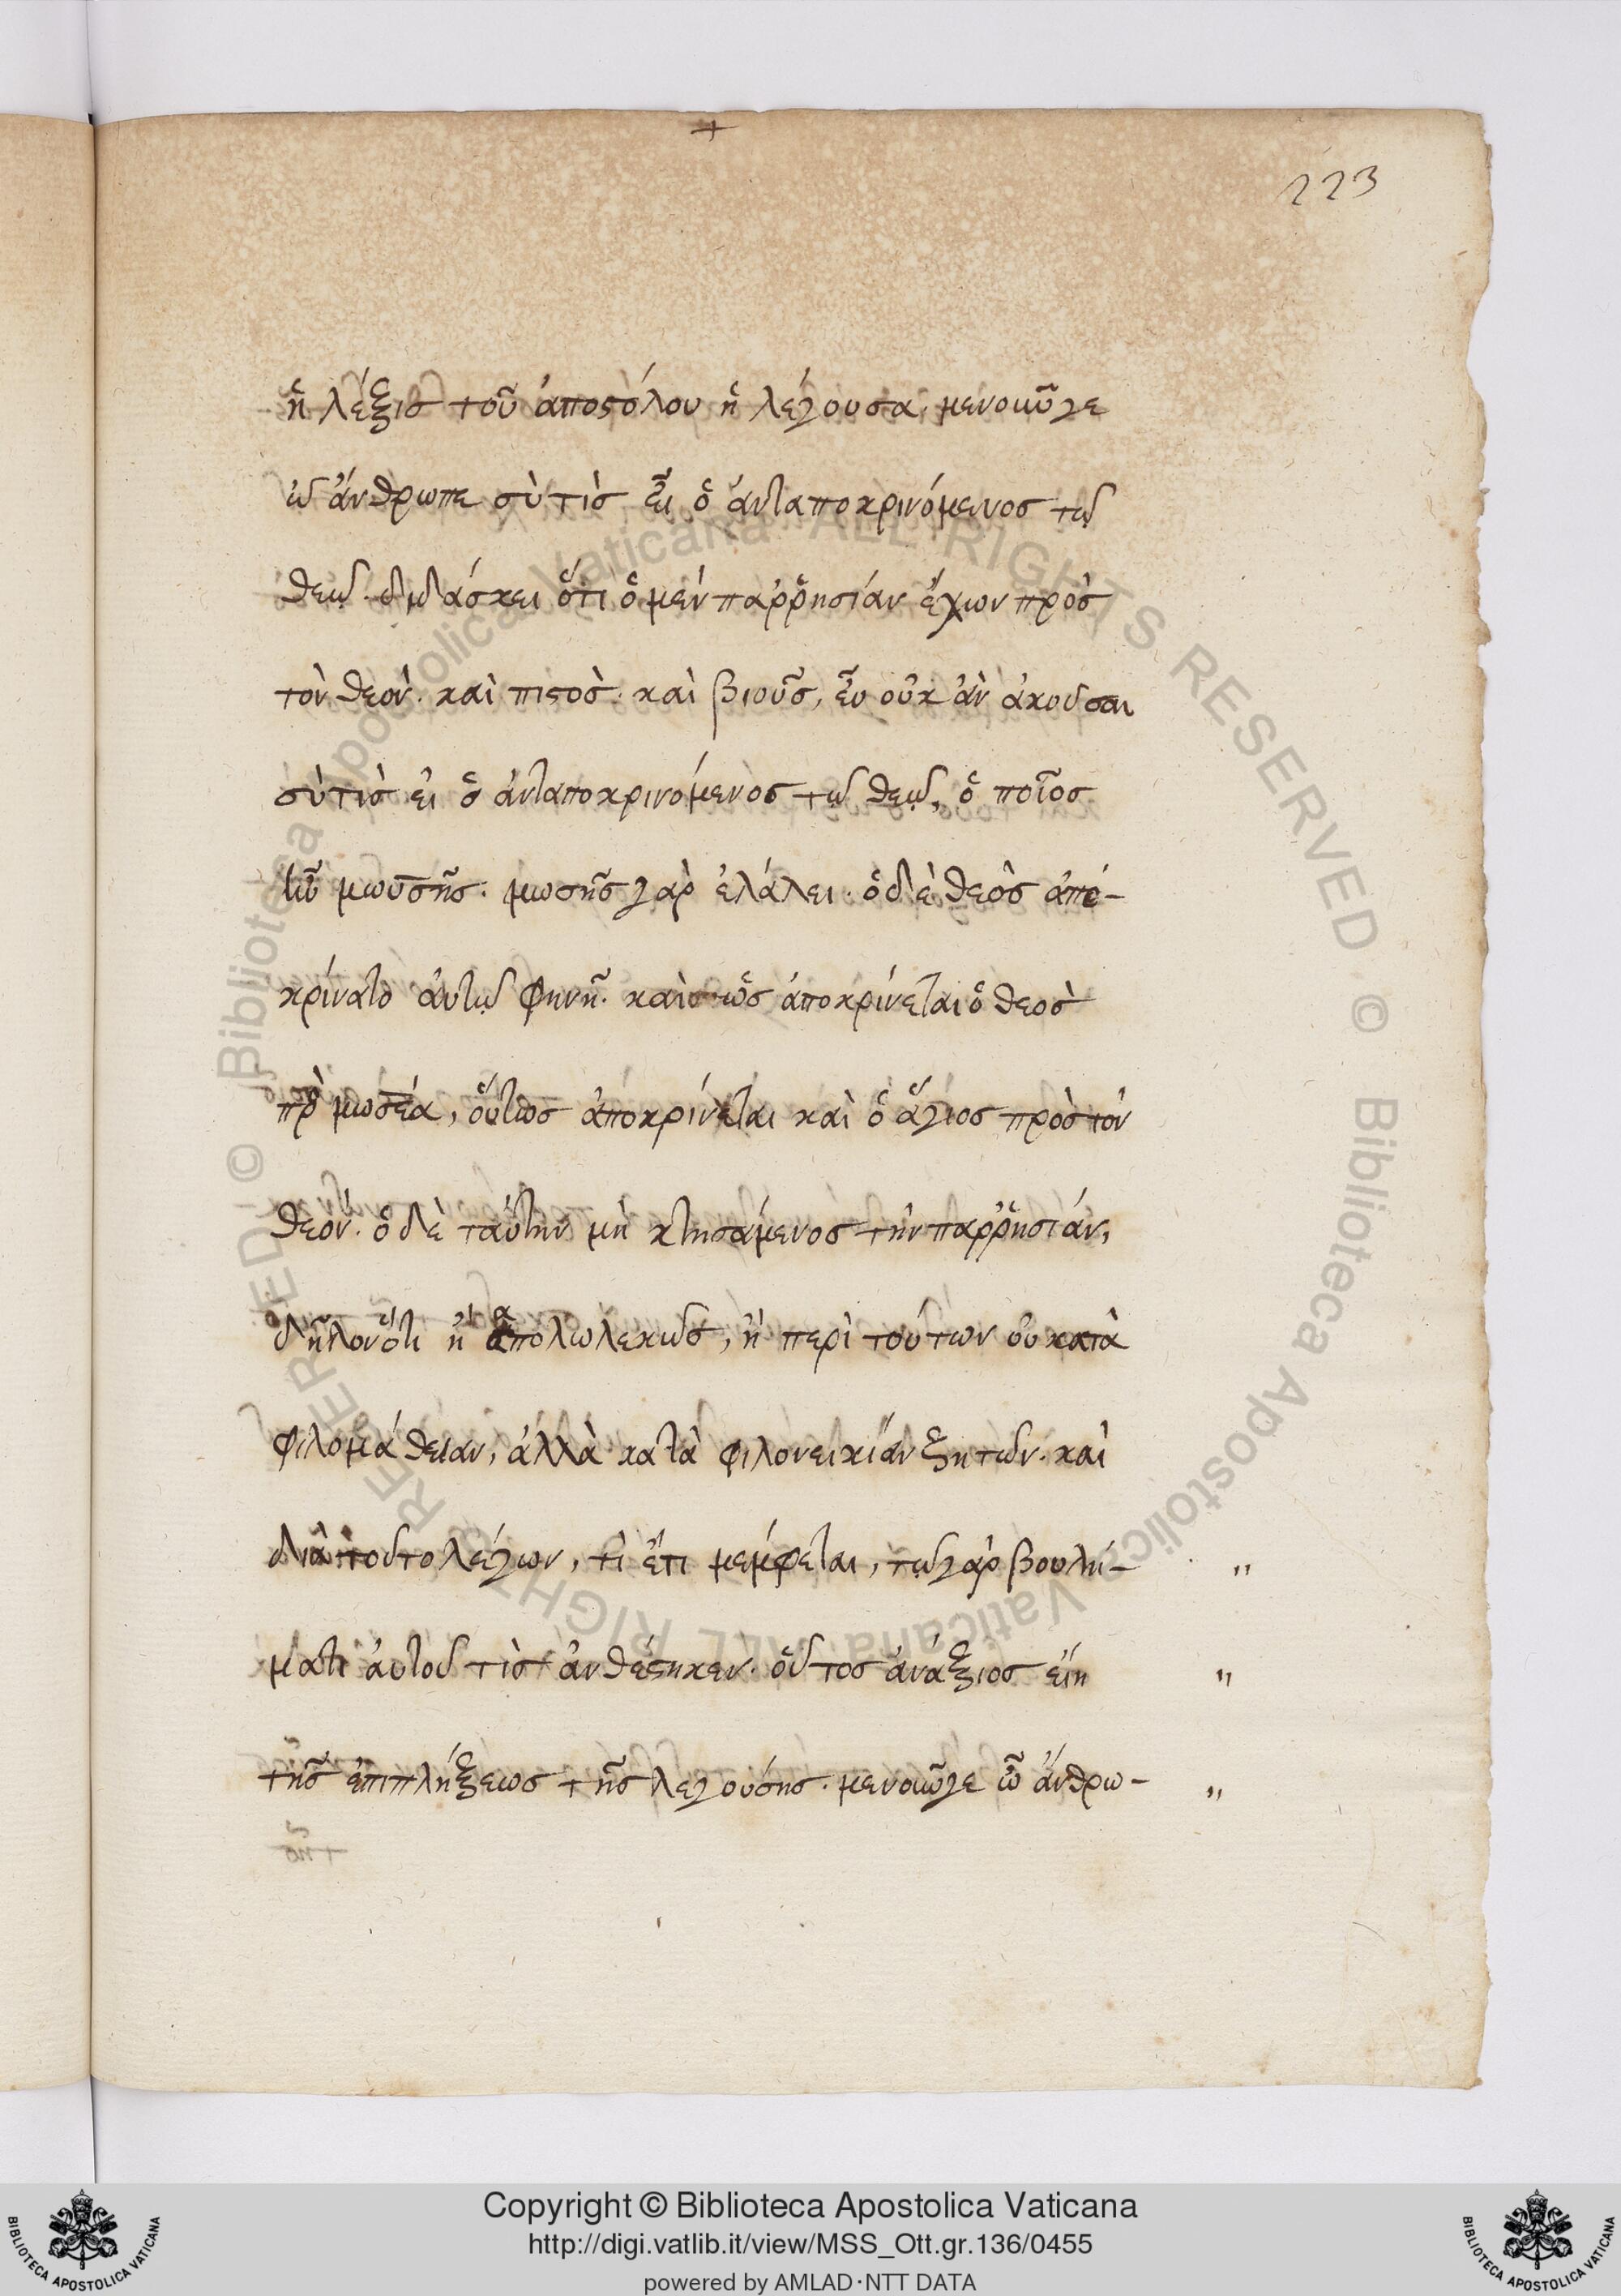 223
ἡ λέξις τοῦ ἀποστόλου ἡ λέγουσα, μενοῦνγε
ὦ ἄνθρωπε σὺ τὶς εἶ ὁ ἀνταποκρινόμενος τῶ
θεῶ. διδάσκει ὅτι ὁ μὲν παῤῥησίαν ἔχων πρὸς
τὸν θεὸν. καὶ πιστὸς. καὶ βιοῦς, εὖ οὐκ ἂν ἀκούσαι
σὺ τὶς εἶ ὁ ἀνταποκρινόμενος τῶ θεῶ, ὁ ποῖος
ἦν μωυσῆς. μωσῆς γὰρ ἐλάλει. ὁ δὲ θεὸς ἀπε-
κρίνατο αὐτῶ φωνῆ. καὶ ὡς ἀποκρίνεται ὁ θεὸς
πρὸ μωσέα, οὕτως ἀποκρίνεται καὶ ὁ ἅγιος πρὸς τὸν
θεόν. ὁ δὲ ταύτην μὴ κτησάμενος τὴν παῤῥησίαν,
δῆλον ὅτι ἢ ἀπολωλεκὼς, ἢ περὶ τούτων οὐ κατὰ
φιλομάθειαν, ἀλλὰ κατὰ φιλονεικίαν ζητῶν. καὶ
διὰ τοῦτο λέγων, τὶ ἔτι μέμφεται, τῶ γὰρ βουλή- "
ματι αὐτοῦ τὶς ἀνθέστηκεν. οὗτος ἀνάξιος εἴη "
τῆς ἐπιπλήξεως τῆς λεγούσης. μενοῦνγε ὦ ἄνθρω- "
Copyright © Biblioteca Apostolica Vaticana
http://digi.vatlib.it/view/MSS_Ott.gr.136/0455
powered by AMLAD·NTT DATA
BIBLIOTECA APOSTOLICA VATICANA
BIBLIOTECA APOSTOLICA VATICANA
© Biblioteca Apostolica Vaticana ALL RIGHTS RESERVED © Biblioteca Apostolica Vaticana ALL RIGHTS RESERVED